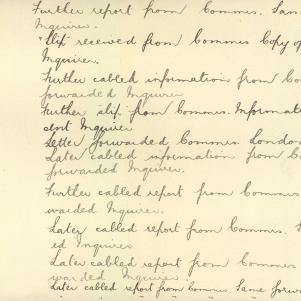 Further report from Commrs. Sam
Inquirer.
"Slip" received from Commrs Copy of
Inquirer.
Further cabled information from Co
forwarded Inquirer
Further "slip" from Commrs. Informati
sent Inquirer
Letter forwarded Commrs. London
Later cabled information from C
forwarded Inquirer.
Further cabled report from Commrs
warded Inquirer.
Later cabled report from Commrs. S
ed Inquirer
Later cabled report from Commrs
warded Inquirer
Later cabled report from Commrs. Same forwar